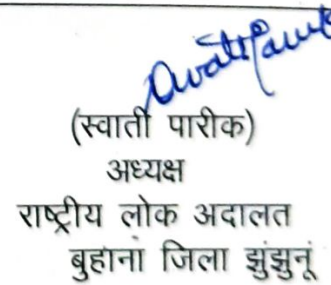 (स्वाती पारीक)
अध्यक्ष
राष्ट्रीय लोक अदालत
बुहाना जिला झुंझुनूं